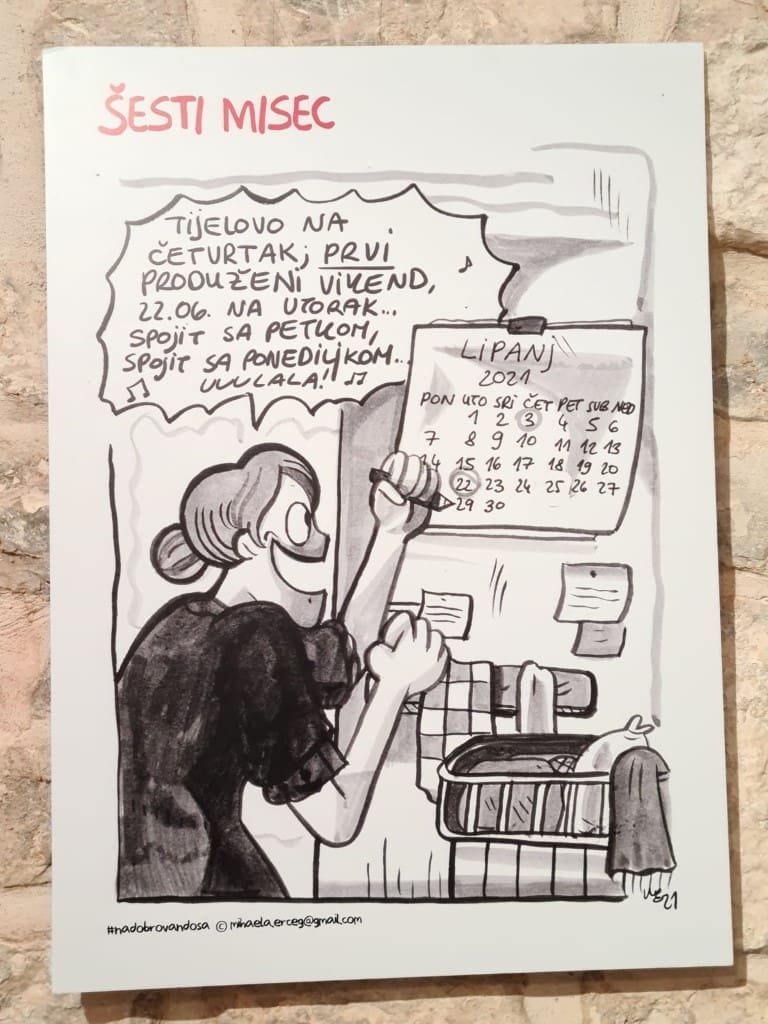 ŠESTI MISEC
TIJELOVO NA
ČETVRTAK, PRVI
PRODUŽENI VIKEND,
22.06. NA UTORAK...
SPOJIT SA PETKOM,
SPOJIT SA PONEDILJKOM...
UUULALA!
LIPANJ
2021
PON UTO SRI ČET PET SUB NED
1 2 3 4 5 6
7 8 9 10 11 12 13
14 15 16 17 18 19 20
22 23 24 25 26 27
29 30
#nadobrovandosa © mihaela.erceg@gmail.com